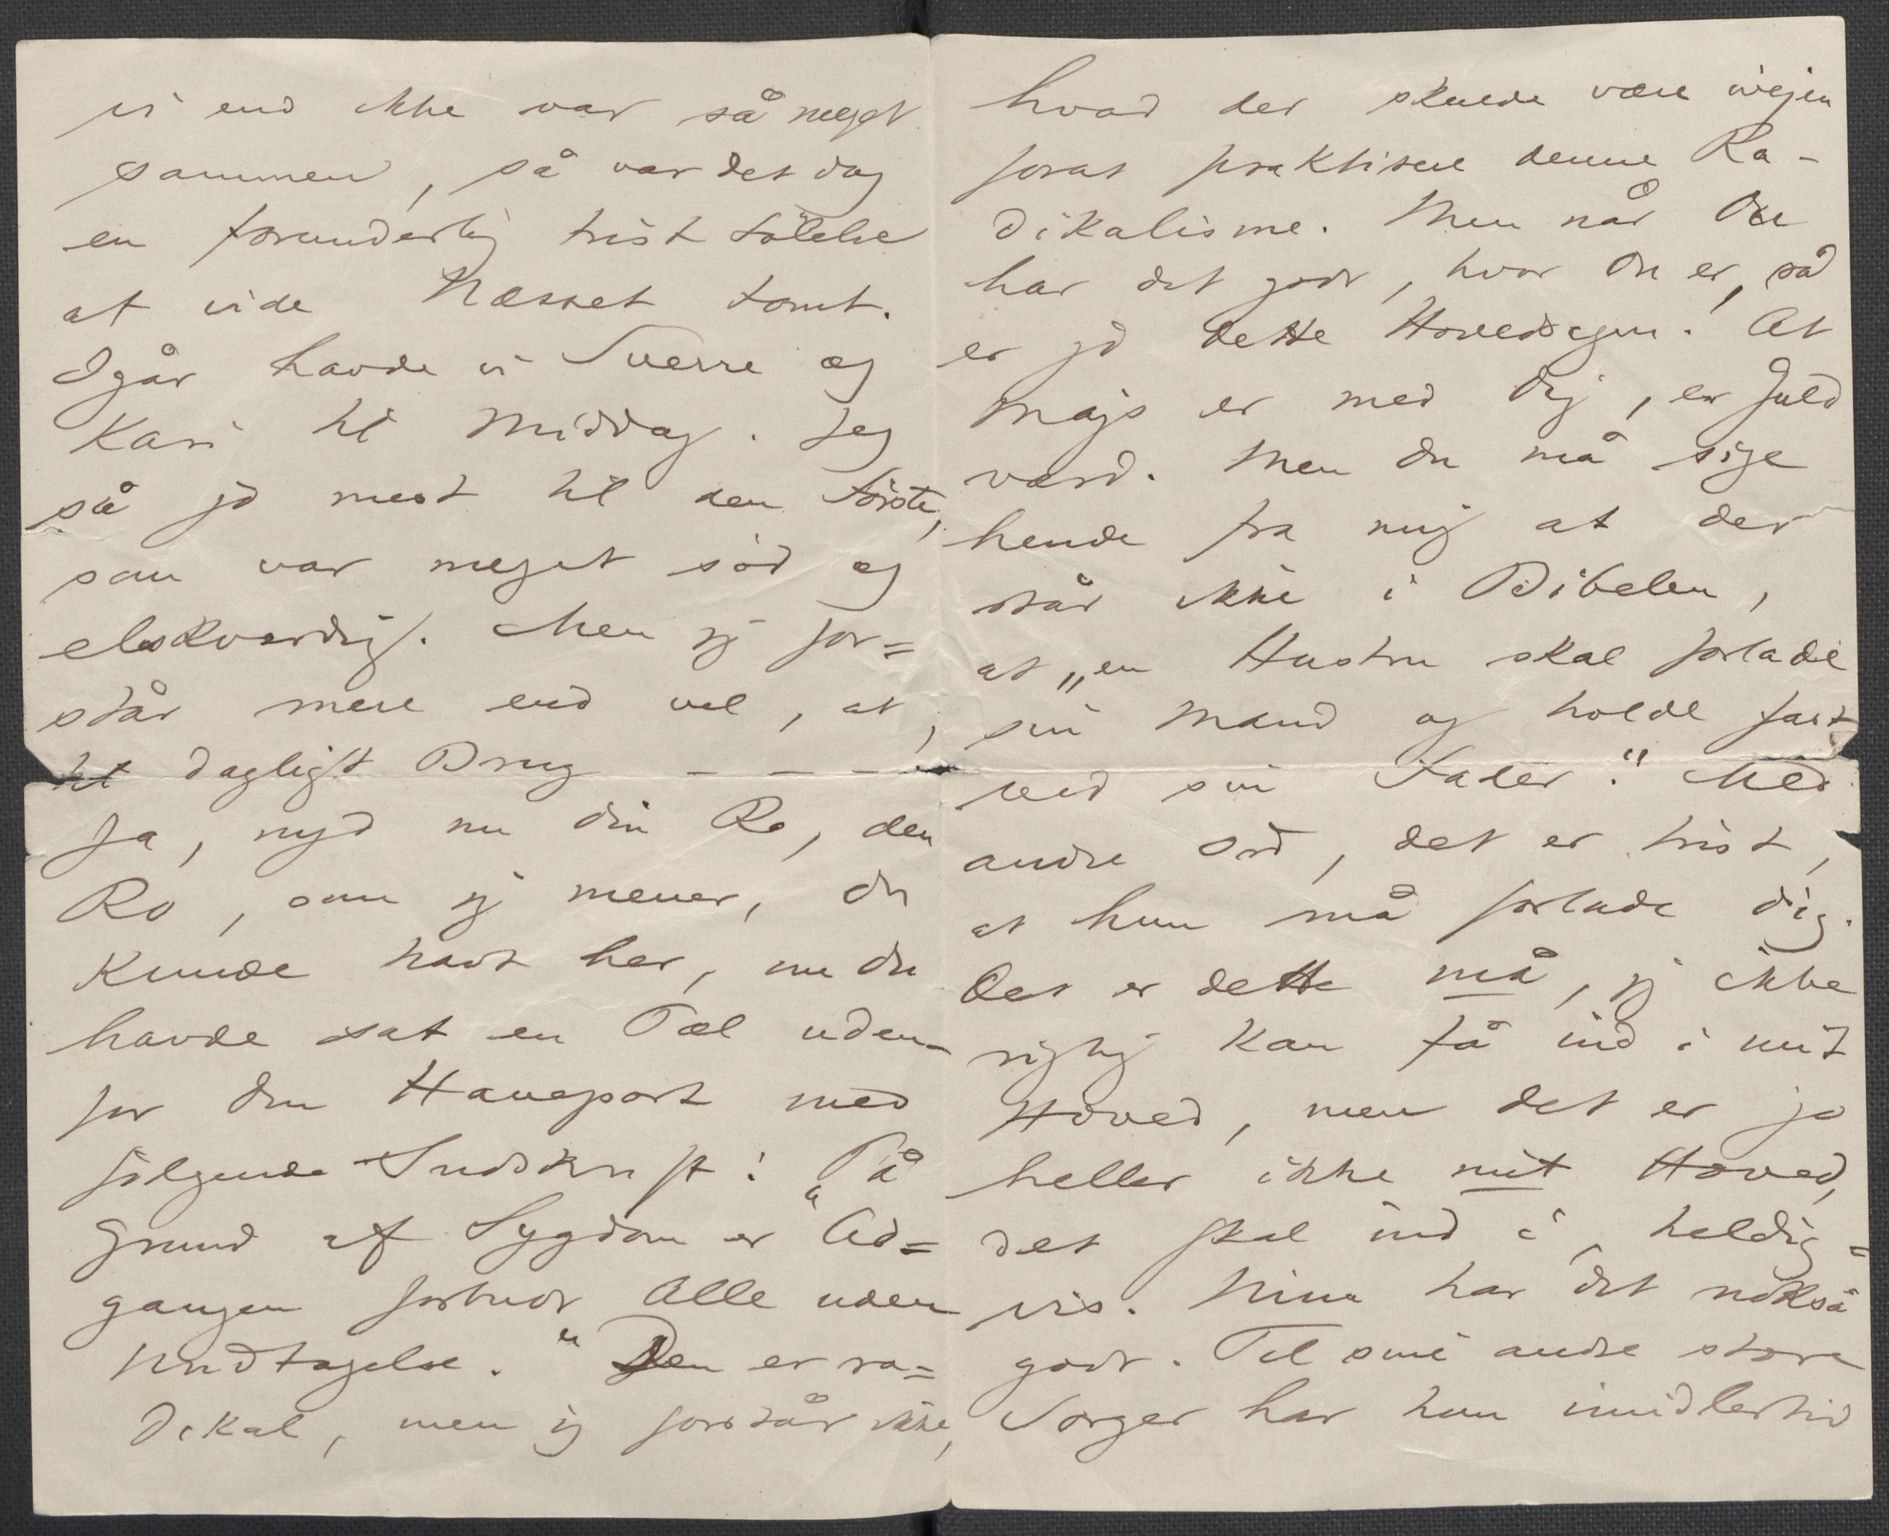 vi end ikke var så meget
sammen, så var det dog
en forunderlig trist Følelse
at vide Næsset tomt.
Igår havde vi Sverre og
Kari til Middag. Jeg
så jo mest til den første,
som var meget sød og
elskværdig. Men jeg for=
står mere end vel, at,
til dagligt Brug – – –
Ja, nyd nu din Ro, den
Ro, som jeg mener, du
kunde havt her, nu du
havde sat en Pæl uden-
for din Haveport med
følgende Indskrift: „På
Grund af Sygdom er Ad=
gangen forbudt Alle uden
Undtagelse.“ Den er ra=
dikal, men jeg forstår ikke,
hvad der skulde være ivejen
forat praktisere denne Ra-
dikalisme. Men når Du
har det godt, hvor Du er, så
er jo dette Hovedsagen. At
Majs er med Dig, er Guld
værd. Men du må sige
hende fra mig at der
står ikke i Bibelen,
at „en Hustru skal forlade
sin Mand og holde fast
ved sin Fader“. Med
andre Ord, det er trist,
at hun må forlade dig.
Det er dette må, jeg ikke
rigtig kan få ind i mit
Hoved, men det er jo
heller ikke mit Hoved,
det skal ind i, heldig=
vis. Nina har det nokså
godt. Til sine andre store
Sorger har hun imidlertid